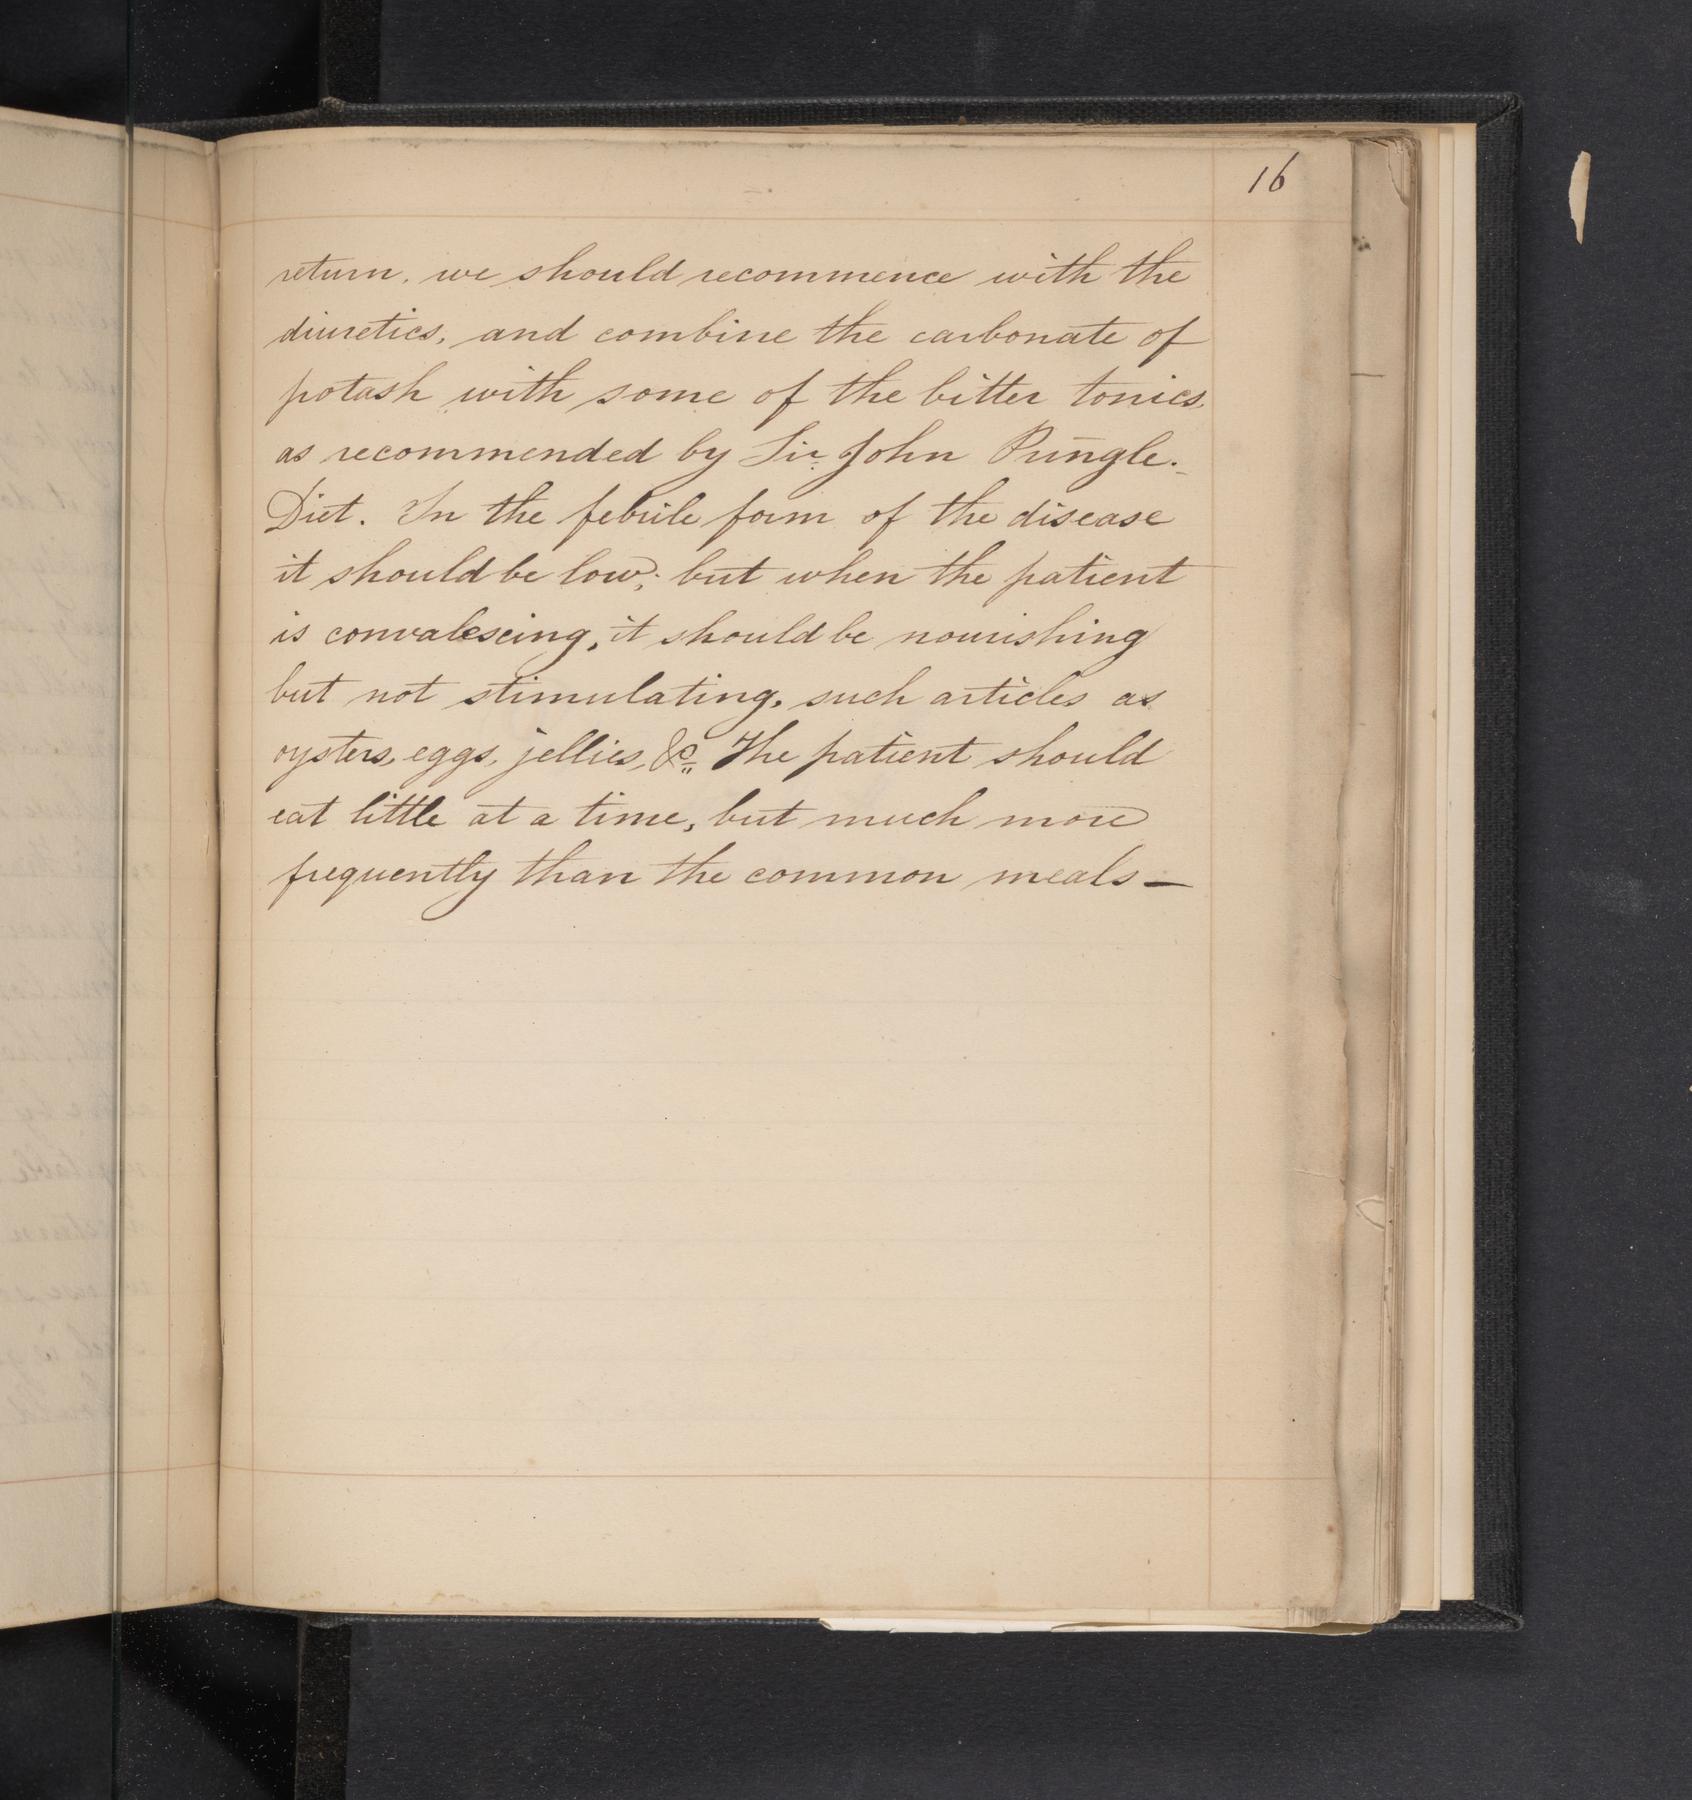 16
return, we should recommence with the
diuretics, and combine the carbonate of
potash with some of the bitter tonics,
as recommended by Sir John Pringle.
Diet. In the febrile form of the disease
it should be low; but when the patient
is convalescing, it should be nourishing
but not stimulating, such articles as
oysters, eggs, jellies, &c. The patient should
eat little at a time, but much more
frequently than the common meals—